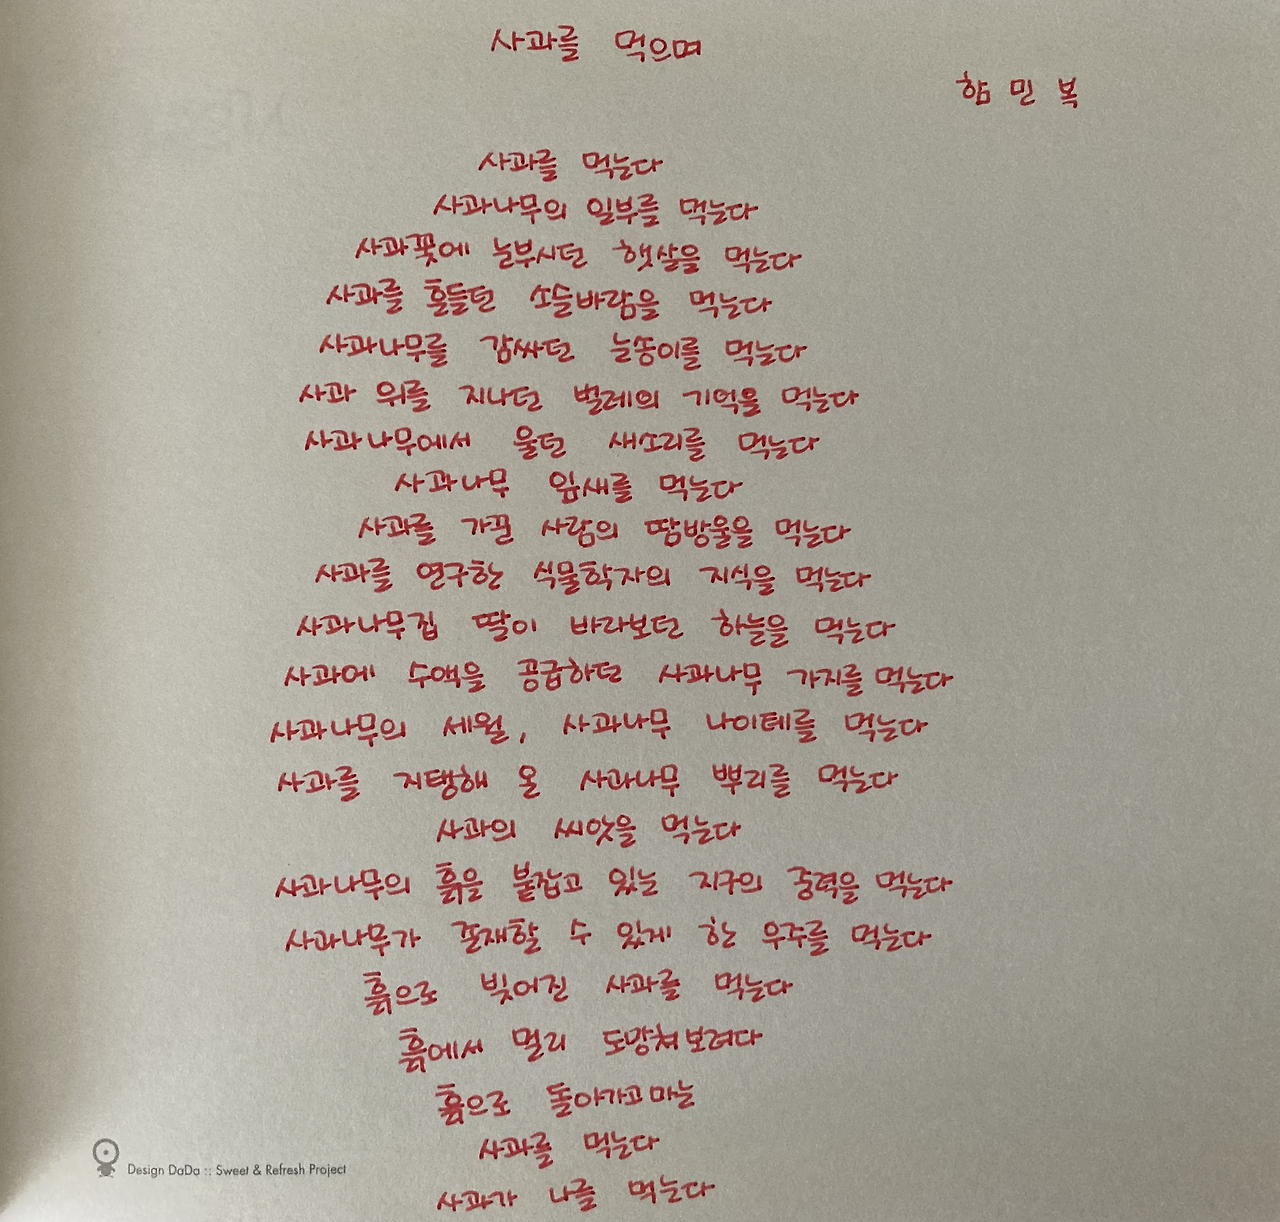 사과를 먹으며
함 민 복
사과를 먹는다
사과나무의 일부를 먹는다
사과꽃에 눈부시던 햇살을 먹는다
사과를 흔들던 소슬바람을 먹는다
사과나무를 감싸던 눈송이를 먹는다
사과 위를 지나던 벌레의 기억을 먹는다
사과나무에서 울던 새소리를 먹는다
사과나무 잎새를 먹는다
사과를 가꾼 사람의 땀방울을 먹는다
사과를 연구한 식물학자의 지식을 먹는다
사과나무집 딸이 바라보던 하늘을 먹는다
사과에 수액을 공급하던 사과나무 가지를 먹는다
사과나무의 세월, 사과나무 나이테를 먹는다
사과를 지탱해 온 사과나무 뿌리를 먹는다
사과의 씨앗을 먹는다
사과나무의 흙을 붙잡고 있는 지구의 중력을 먹는다
사과나무가 존재할 수 있게 한 우주를 먹는다
흙으로 빚어진 사과를 먹는다
흙에서 멀리 도망쳐보려다
흙으로 돌아가고마는
사과를 먹는다
사과가 나를 먹는다
Design DaDa :: Sweet & Refresh Project